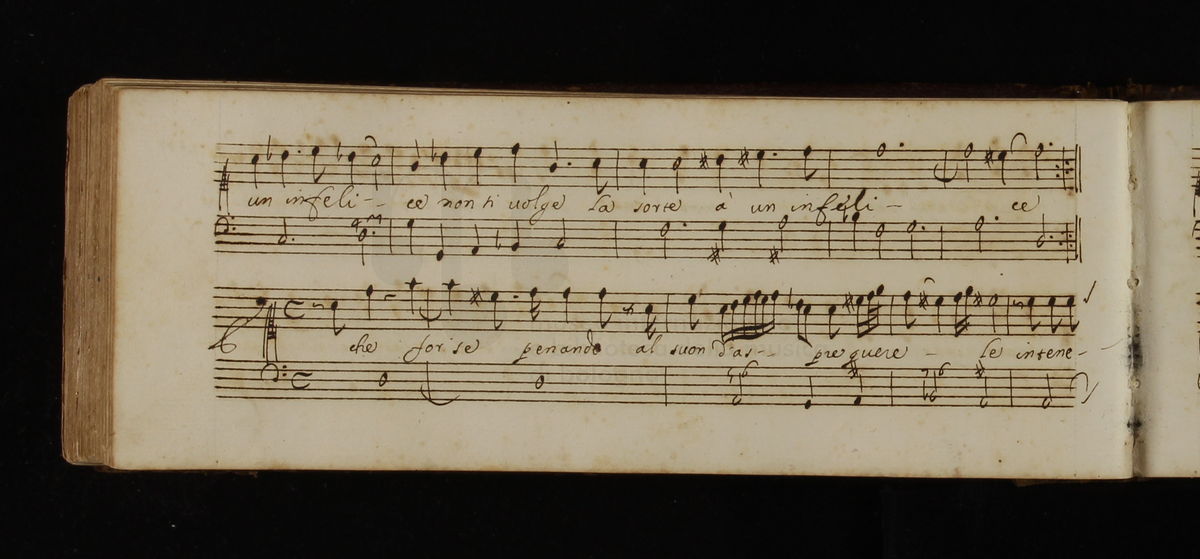 un infeli-- ce non ti volge la sorte à un infeli- ce
che forse penando al suon d'as-- pre quere - le intene-